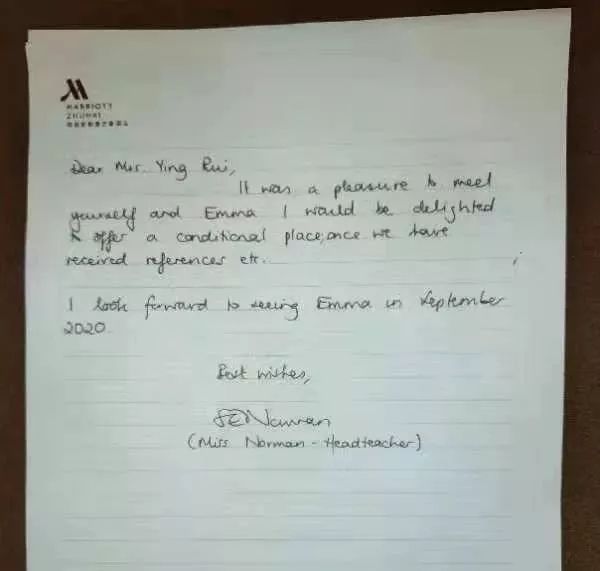 MARRIOTT
ZHUHAI
Dear Mr. Ying Rui,
It was a pleasure to meet
yourself and Emma I would be delighted
to offer a conditional place, once we have
received references etc.
I look forward to seeing Emma in September
2020.
Best wishes,
SENorman
(Miss Norman - Headteacher)